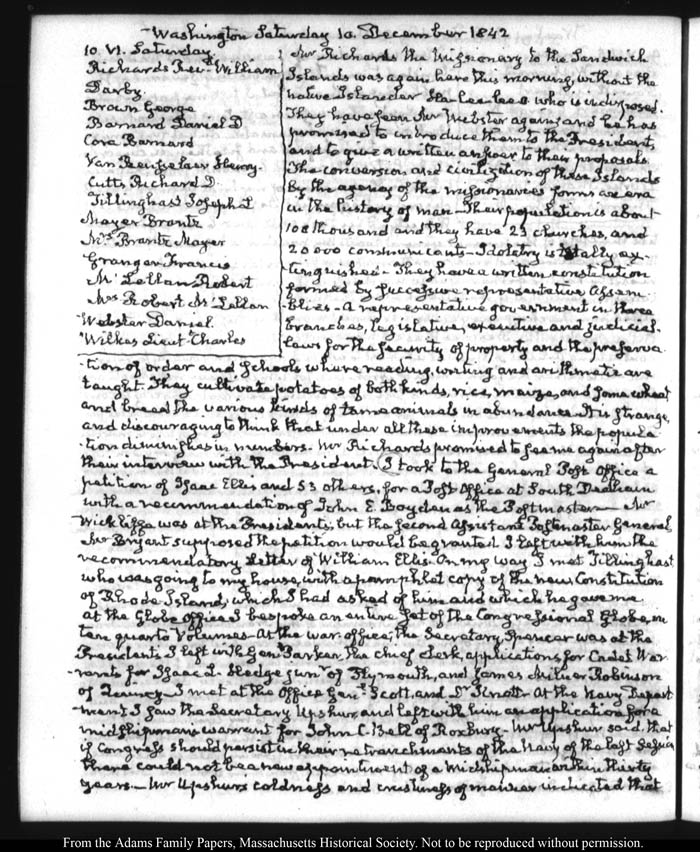 Washington Saturday 10. December 1842
10. VI. Saturday.
Richards Rev.d William
Darby.
Brown George
Barnard Daniel D
Cora Barnard
Van Rensselaer Henry.
Cutts Richard D.
Tillinghast Joseph L
Mayer Brantz
Mrs. Brantz Mayer
Granger Francis
McLellan Robert
Mrs Robert McLellan
Webster Daniel.
Wilkes Lieut. Charles
Mr Richards the Missionary to the Sandwich
Islands was again here this morning, without the
native Islander Haalealeo who is indisposed.
They have seen Mr Webster again, and he has
promised to introduce them to the President,
and to give a written answer to their proposals.
The conversion and civilization of these Islands
by the agency of the missionaries forms an era
in the history of man—Their population is about
108 thousand and they have 23 churches, and
20000 communicants—Idolatry is totally ex-
tinguished—They have a written constitution
formed by successive representative Assem-
blies—A representative government in three
branches, legislative, executive and judicial.
laws for the security of property and the preserva-
tion of order and schools where reading, writing and arithmetic are
taught. They cultivate potatoes of both kinds, rice, maize, and some wheat
and breed the various kinds of tame animals in abundance. It is strange,
and discouraging to think that under all these improvements the popula-
tion diminishes in numbers. Mr Richards promised to see me again after
their interview with the President. I took to the General Post Office a
petition of Isaac Ellis and 53 others, for a Post Office at South Dedham
with a recommendation of John E. Boyden as the Postmaster—Mr
Wickliffe was at the Presidents, but the second Assistant Postmaster General
Mr Bryant supposed the petition would be granted I left with him the
recommendatory Letter of William Ellis. On my way I met Tillinghast
who was going to my house, with a pamphlet copy of the new Constitution
of Rhode Island, which I had asked of him and which he gave me.
at the Globe Office I bespoke an entire set of the Congressional Globe, in
ten quarto volumes—At the war office, the Secretary Spencer was at the
Presidents I left with Genl. Parker, the chief Clerk, applications for Cadet War-
rants for Isaac L. Hedge junr of Plymouth, and James Milner Robinson
of Quincy. I met at the Office Genl. Scott, and Dr Knott—At the Navy Depart-
ment I saw the Secretary Upshur, and left with him an application for a
midshipman's warrant for John C. Bell of Roxbury—Mr Upshur said that
if Congress should persist in their retrenchments of the Navy of the last Session
there could not be a new appointment of a Midshipman within thirty
years—Mr Upshur's coldness and crustiness of manner indicated that
From the Adams Family Papers, Massachusetts Historical Society. Not to be reproduced without permission.